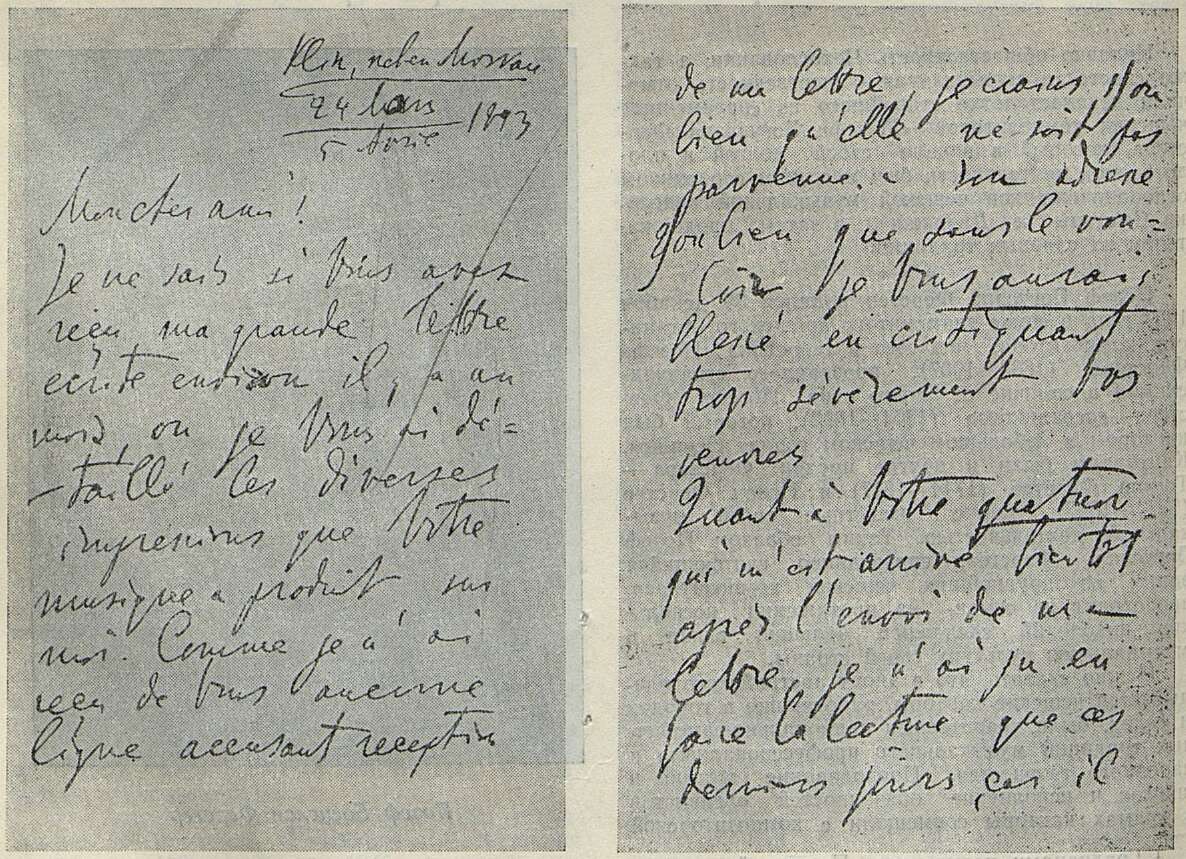 Klin, neben Moskau
24 Mars
5 Avril 1893
Mon cher ami!
Je ne sais si Vous avez
reçu ma grande lettre
écrite environ il y a un
mois, ou je Vous ai dé=
-taillé les diverses
impressions que Votre
musique a produit sur
moi. Comme je n'ai
reçu de Vous aucune
ligne accusant reception
de ma lettre, je crains, 1) ou
bien qu'elle ne soit pas
parvenue à son adresse
2) ou bien que sans le vou=
loir je Vous aurais
blessé en critiquant
trop sévèrement Vos
œuvres
Quant à Votre quatuor
qui m'est arrivé bientôt
après l'envoi de ma
lettre, je n'ai pu en
faire la lecture que ces
derniers jours, car il